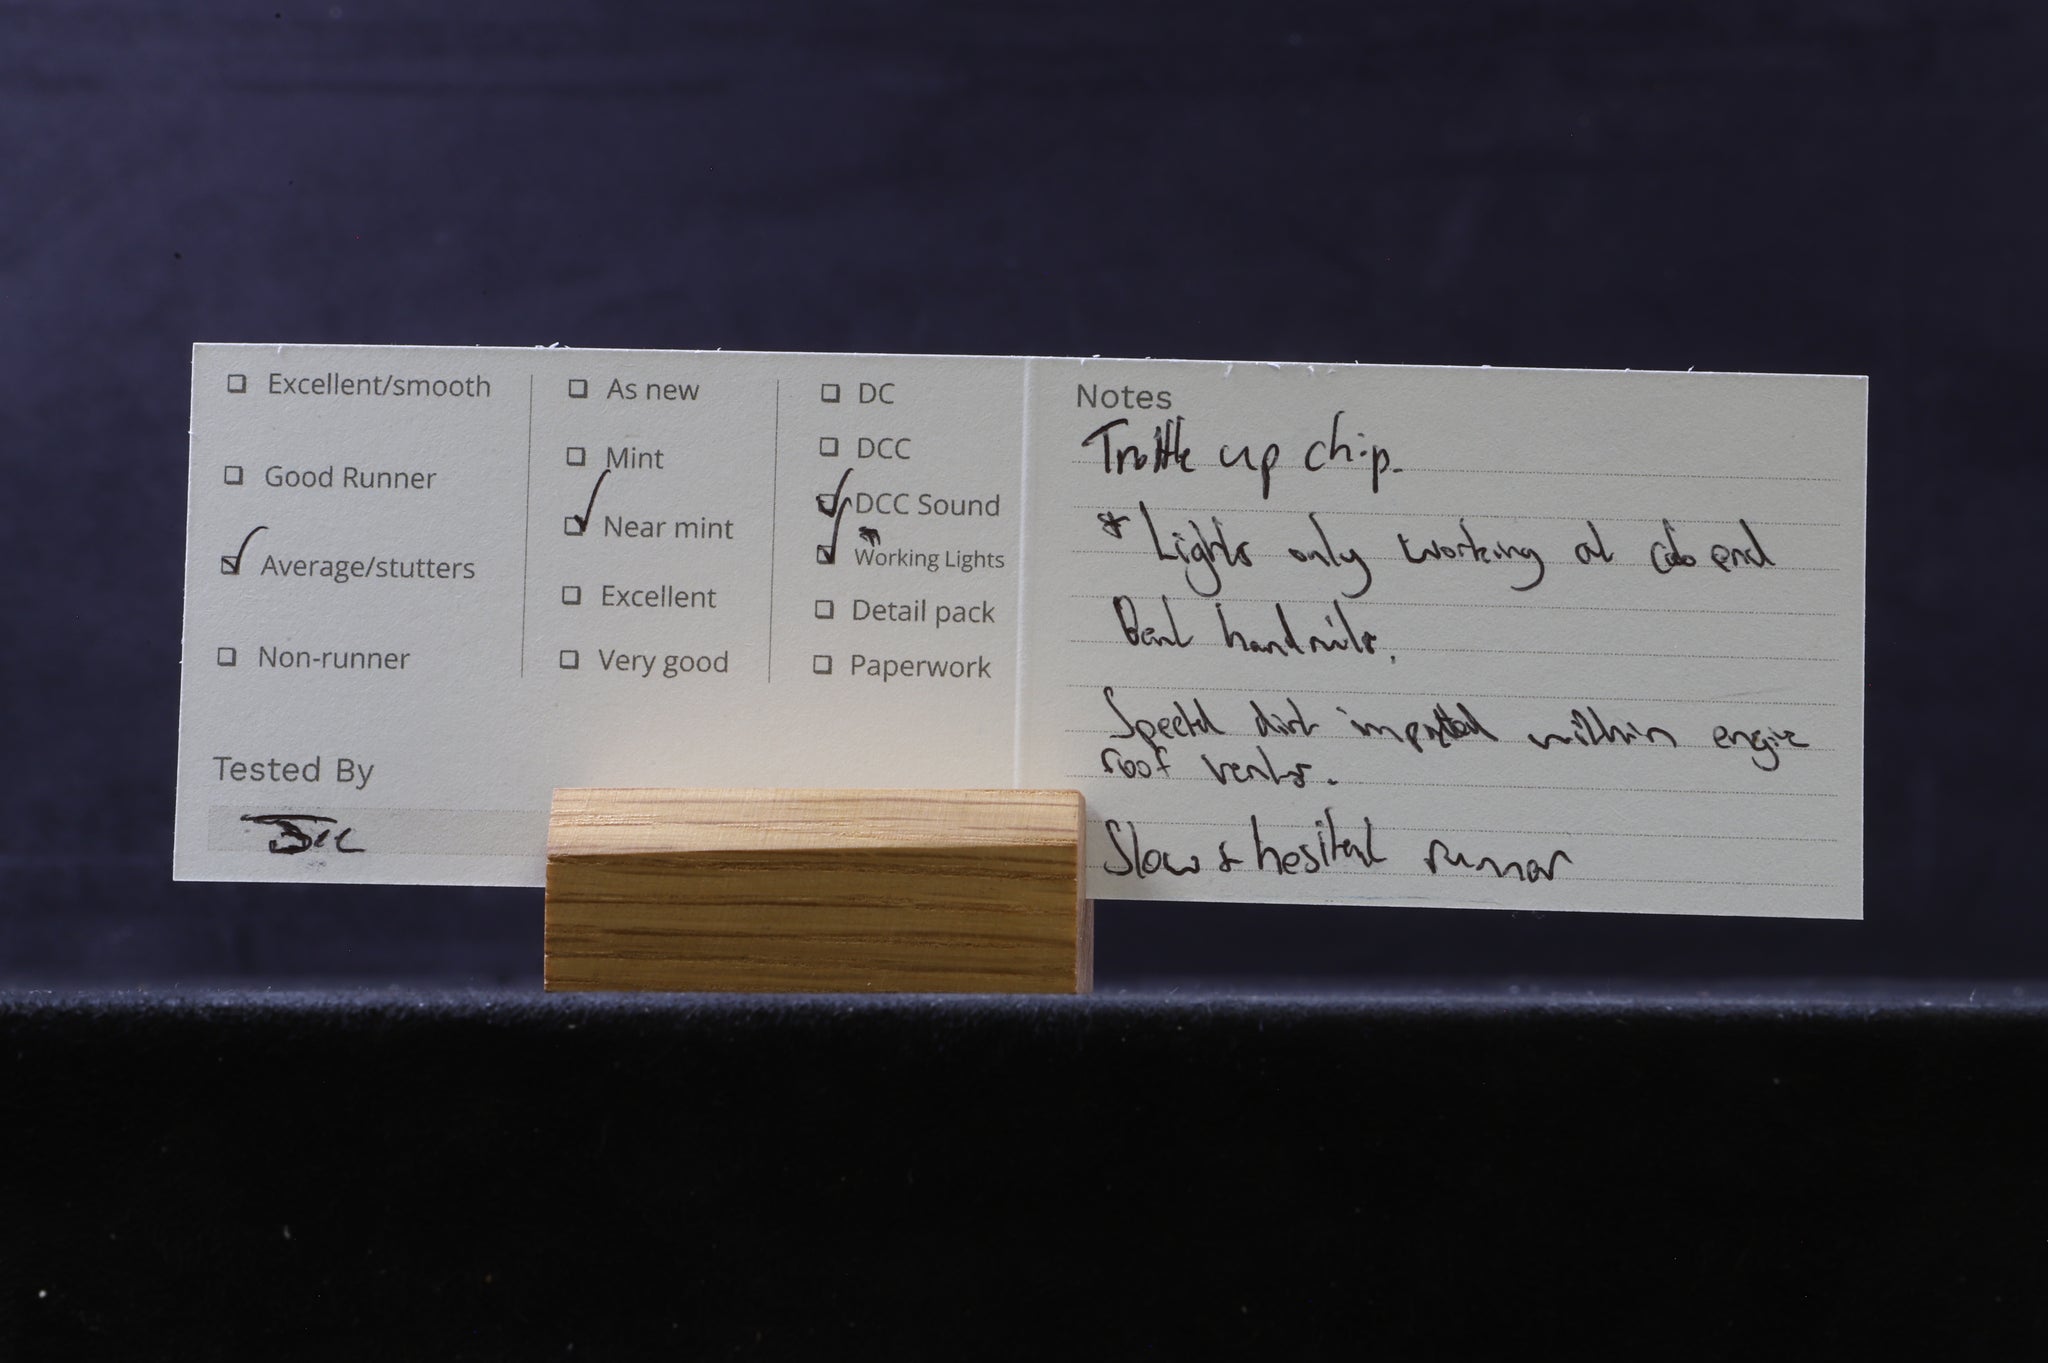 Excellent/smooth
Good Runner
Average/stutters
Non-runner
As new
Mint
Near mint
Excellent
Very good
DC
DCC
DCC Sound
*
Working Lights
Detail pack
Paperwork
Tested By
Notes
up chip.
* Lights only working at cab end
Bent handrails.
dirt within engine
roof vents.
Slow & hesitant runner